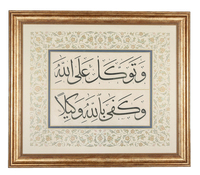 وَتَوَكَّلْ عَلَى اللّٰهِ
وَكَفَىٰ بِاللّٰهِ وَكِيلًا